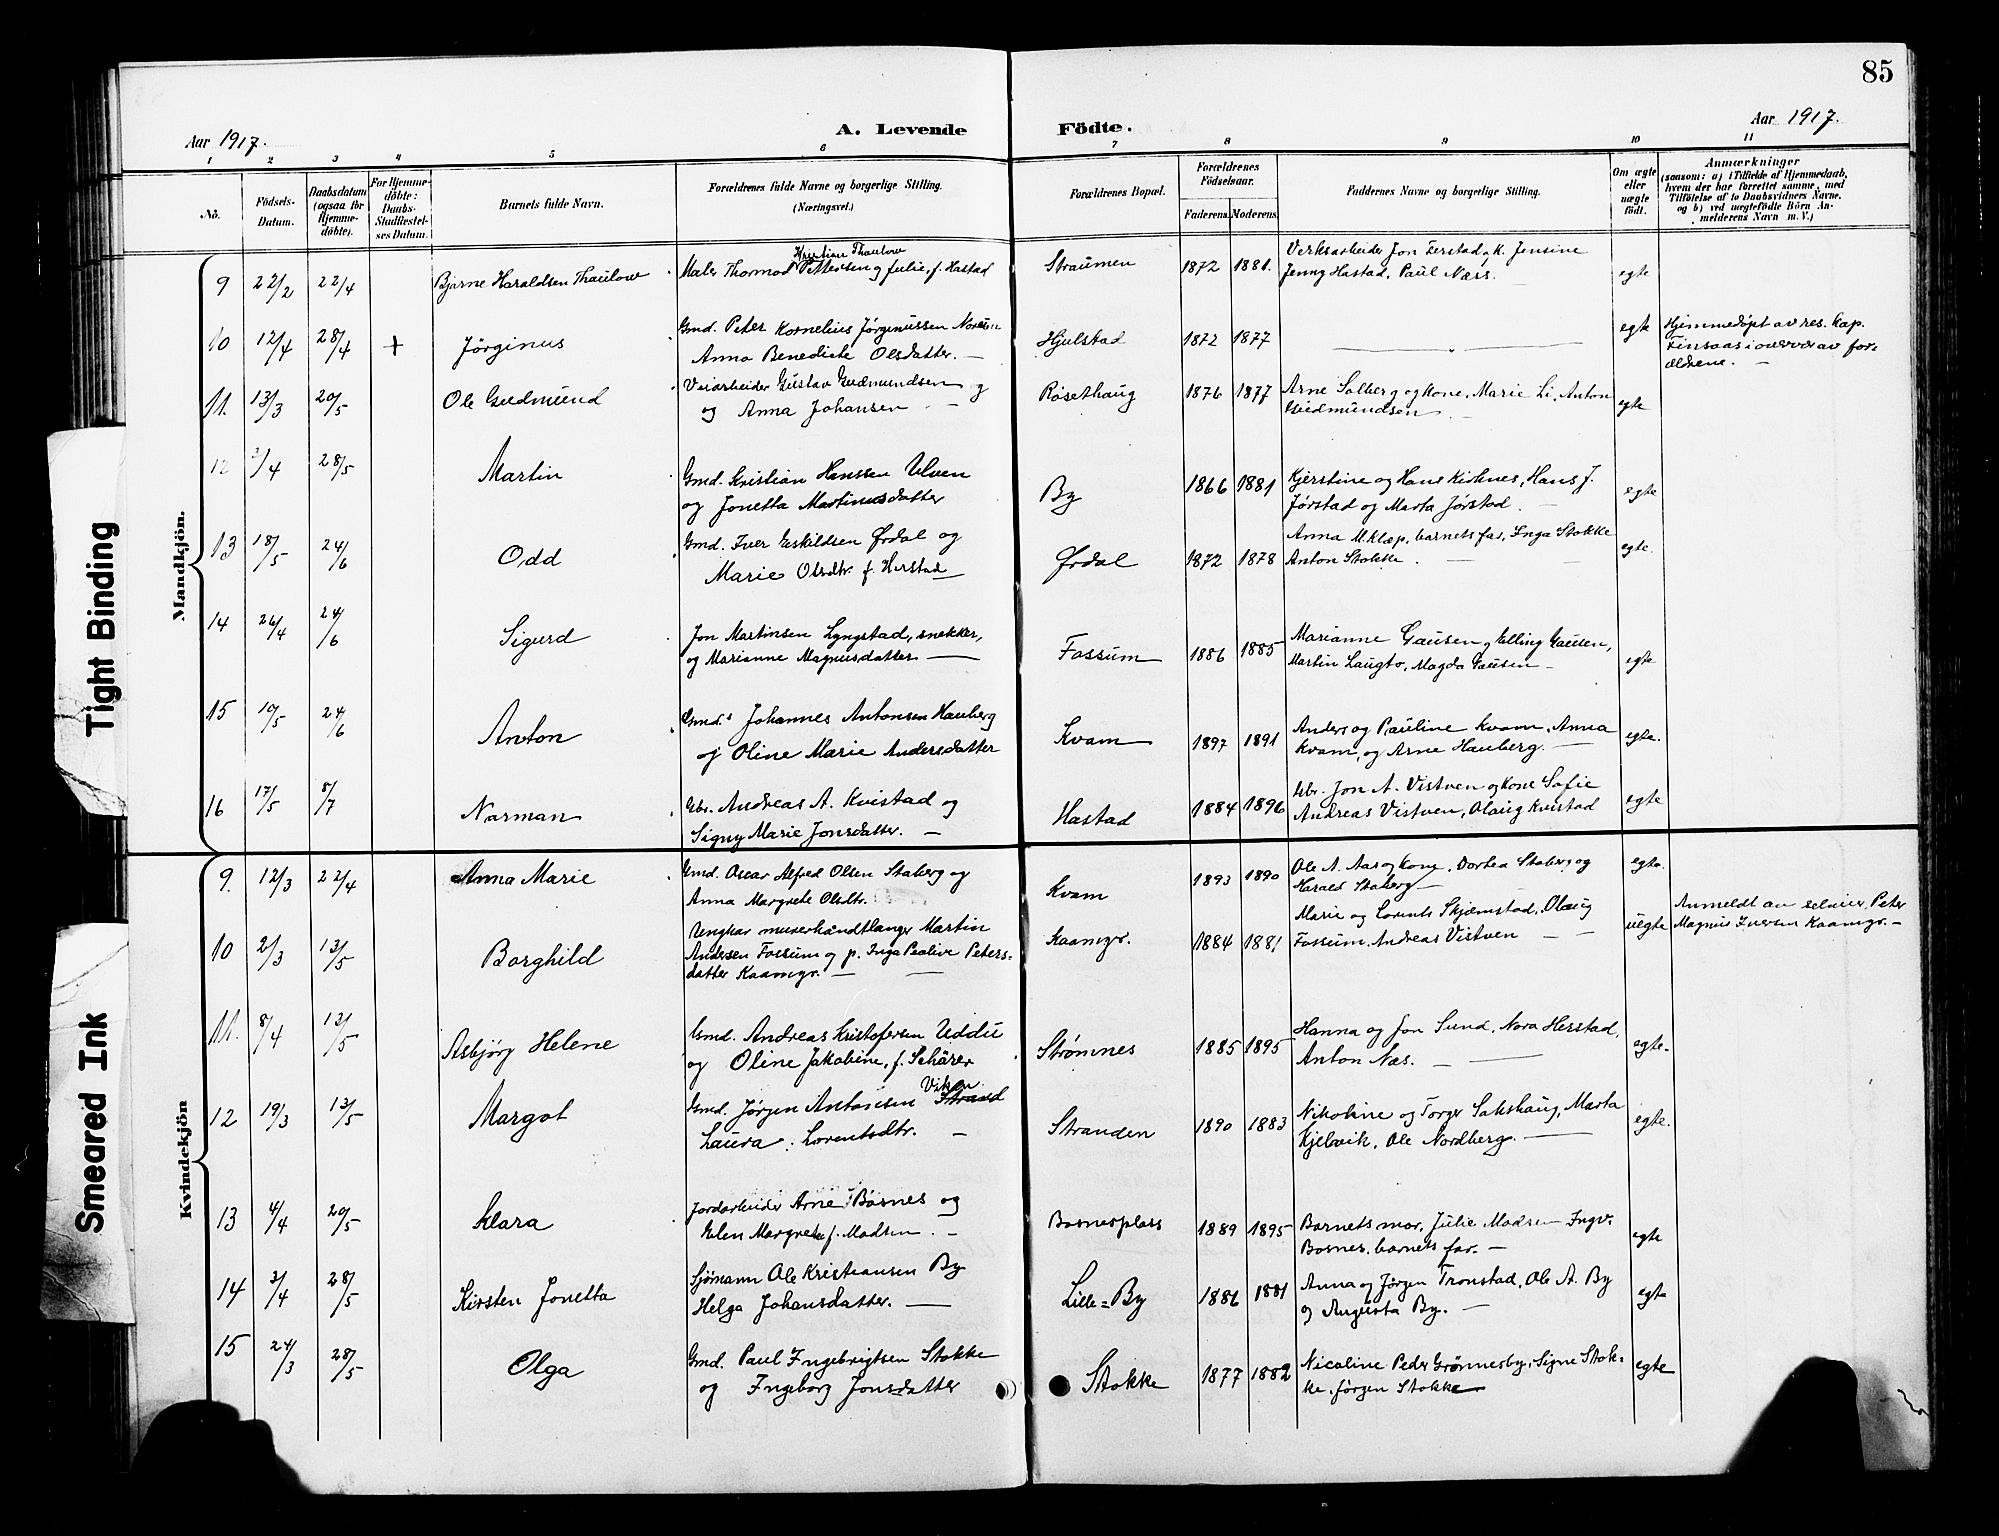 85
Aar 1917.
A. Levende Födte.
Aar 1917.
1 2 3 4 5 6 7 8 9 10 11
No.
Födsels-
Datum.
Daabsdatum
(ogsaa for
Hjemme-
döbte).
For Hjemme-
döbte:
Daabs-
Stadfæstel-
ses Datum.
Barnets fulde Navn.
Forældrenes fulde Navne og borgerlige Stilling.
(Næringsvei.)
Forældrenes Bopæl.
Forældrenes
Födselsaar.
Faderens. Moderens.
Faddernes Navne og borgerlige Stilling.
Om ægte
eller
uægte
födt.
Anmærkninger
(saasom: a) i Tilfælde af Hjemmedaab,
hvem der har forrettet samme, med
Tilföielse af to Daabsvidners Navne,
og b) ved uægtefödte Börn An-
melderens Navn m. V.)
Mandkjön.
9 22/2 22/4 Bjarne Haraldsen Thaulow
Kristian Thaulow
Maler Thormod Pettersen og Julie, f. Hastad
Straumen 1872 1881.
Verksarbeider Jon Ferstad, k. Jensine
Jenny Hastad, Paul Næss.
egte
10 12/4 28/4 + Jörginus
Gmd. Peter Kornelius Jörginussen
Anna Benedicte Olsdatter.
Hjulstad 1872 1877
egte
Hjemmedöpt av res. kap.
Finsaas i overvær av for-
ældrene.
11. 13/3 20/5 Ole Gudmund
Veiarbeider Gustav Gudmundsen og
og Anna Johansen
Rösethaug 1876 1877
Arne Salberg og kone, Marie Li, Anton
Gudmundsen
egte
12 /4 28/5 Martin
Gmd. Kristian Hanssen Ulven
og Jonetta Martinusdatter
By 1866 1881
Kjerstine og Hans Kirknes, Hans J.
Jørstad og Marta Jørstad
egte
13 18/5 24/6 Odd
Gmd. Iver Eskildsen Ørdal og
Marie Olsdtr. f. Herstad
Ørdal 1872 1878
Anna M. Klæp, barnets far, Inga Stokke
Anton Stokke.
egte.
14 26/4 24/6 Sigurd
Jon Martinsen Lyngstad, snekker,
og Marianne Magnusdatter
Fossum 1886 1885
Marianne Gausen, Elling Gausen,
Martin Laugto, Magda Gausen
egte
15 10/5 24/6 Anton
Gmds Johannes Antonsen Hauberg
og Oline Marie Andersdatter
Kvam 1897 1891
Anders og Pauline Kvam, Anna
Kvam, og Arne Hauberg.
egte.
16 17/5 8/7 Norman
Gbr. Andreas A. Kvistad og
Signy Marie Jonsdatter.
Hastad 1884 1896
Gbr. Jon A. Vistven og kone Sofie
Andreas Vistven, Olaug Kvistad
egte
Kvindekjön
9. 12/3 22/4 Anna Marie
Gmd. Oscar Alfred Olsen Staberg og
Anna Margrete Olsdtr.
Kvam 1893 1890
Ole A. Aas og kone, Dortea Staberg og
Harald Staberg
egte.
10 2/3 13/5 Borghild
Ungkar murerhåndtlanger Martin
Andersen Fossum og p. Inga Paoline Peters-
datter Kaamgr.
Kaamgr. 1884 1881
Marie og Lorents Skjemstad, Olaug
Fossum, Andreas Vistven
uegte
Anmeldt av selveier Peter
Magnus Iversen Kaamgr.
11. 8/4 13/5 Asbjörg Helene
Gmd. Andreas Kristofersen Uddu
og Oline Jakobine, f. Schärer
Strømnes 1885 1895
Hanna og Jon Sund, Nora Herstad,
Anton Næs.
egte.
12 19/3 13/5 Margot
Gmd. Jörgen Antonsen Strand
Viken
Laura Lorentsdtr.
Stranden 1890 1883
Nikoline og Torger Sakshaug, Marta
Kjelvik, Ole Nordberg.
egte.
13 4/4 20/5 Klara
Jordarbeider Arne Bosnes og
Elen Margrete f. Madsen
Bosnesplass 1889 1895
Barnets mor, Julie Madsen Ingv.
Bosnes, barnets far.
egte
14 3/4 28/5 Kirsten Jonetta
Sjömann Ole Kristiansen By
Helga Johansdatter.
Lille=By 1886 1881
Anna og Jörgen Tronstad, Ole A. By
og Augusta By.
egte
15 24/3 28/5 Olga
Gmd. Paul Ingebrigtsen Stokke
og Ingeborg Jonsdatter
Stokke 1877 1882
Nicoline Peder Grönnesby, Signe Stok-
ke, Jörgen Stokke
egte
Tight Binding
Smeared Ink